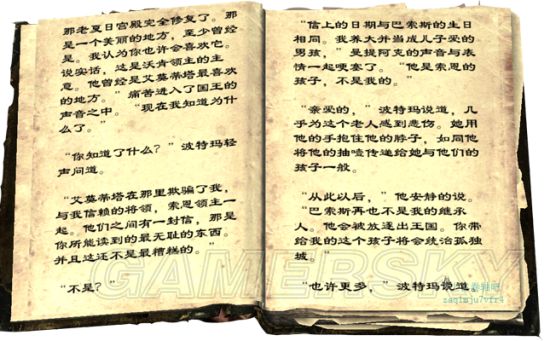 那老夏日宫殿完全修复了。那
是一个美丽的地方，至少曾经
是。我认为你也许会喜欢它。
说实话，这是沃肯领主的主
意。他曾经是艾莫蒂塔最喜欢
的地方。”痛苦进入了国王的
声音之中。“现在我知道为什
么了。”
“你知道了什么？”波特玛轻
声问道。
“艾莫蒂塔在那里欺骗了我，
与我信赖的将领，索恩领主一
起。他们之间有一封信，那是
你所能读到的最无耻的东西。
并且这还不是最糟糕的。”
“不是？”
“信上的日期与巴索斯的生日
相同。我养大并当成儿子爱的
男孩，”曼提阿克的声音与表
情一起哽塞了。“他是索恩的
孩子，不是我的。”
“亲爱的，”波特玛说道，几
乎为这个老人感到悲伤。她用
他的手抱住他的脖子，如同他
将他的抽噎传递给她与他们的
孩子一般。
“从此以后，”他安静的说。
“巴索斯再也不是我的继承
人。他会被放逐出王国。你带
给我的这个孩子将会统治孤独
城。”
“也许更多，”波特玛说道
GAMERSKY
zaqimju7vfr4